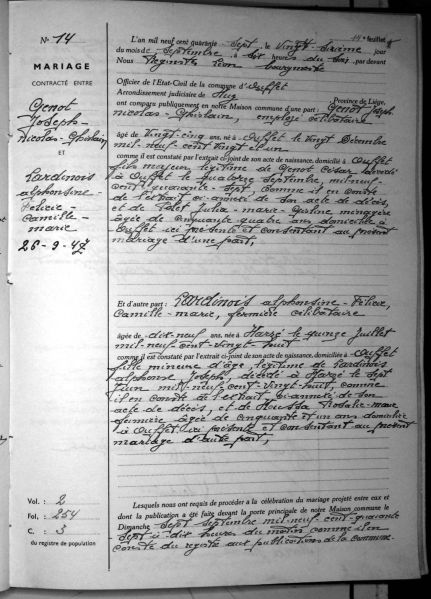 N° 14
MARIAGE
CONTRACTÉ ENTRE
Genot
Joseph-
Nicolas-Ghislain
ET
Lardinois
alphonsine-
Félicie-
Camille-
marie
26-9-47
Vol. : 2
Fol. : 254
C. : 3
du registre de population
14e feuillet
L'an mil neuf cent quarante sept, le vingt sixième jour
du mois de septembre, à dix heures du , par devant
Nous Léon bourgmestre
Officier de l'Etat-Civil de la commune d'Ouffet
Arrondissement judiciaire de Huy Province de Liége,
ont comparu publiquement en notre Maison commune d'une part : Genot Joseph
nicolas-Ghislain, employé célibataire
âgé de vingt-cinq ans, né à Ouffet le vingt Décembre
mil-neuf-cent vingt et un
comme il est constaté par l'extrait ci-joint de son acte de naissance, domicilié à Ouffet
fils majeur légitime de Genot César décédé
à Ouffet le quatorze septembre mil-neuf-
cent quarante-sept, comme il en conste
de l'extrait ci-annexé de son acte de décès,
et de Julia-marie- ménagère
âgée de cinquante quatre ans domiciliée à
Ouffet ici présente et consentant au présent
mariage d'une part,
Et d'autre part : Lardinois alphonsine-Félicie,
Camille-marie, fermière célibataire
âgée de dix-neuf ans, née à Harzé le quinze Juillet
mil-neuf-cent-vingt huit
comme il est constaté par l'extrait ci-joint de son acte de naissance, domiciliée à Ouffet
fille mineure d'âge, légitime de Lardinois
alphonse Joseph décédé à Harzé le sept
Juin mil-neuf-cent-vingt huit, comme
il en conste de l'extrait ci-annexé de son
acte de décès, et de Rosalie-marie
fermière âgée de cinquante et un ans domiciliée
à Ouffet ici présente et consentant au présent
mariage d'autre part,
Lesquels nous ont requis de procéder à la célébration du mariage projeté entre eux et
dont la publication a été faite devant la porte principale de notre Maison commune le
Dimanche sept septembre mil-neuf-cent-quarante
sept à dix heures du matin comme il en
conste du registre aux publications de la commune.